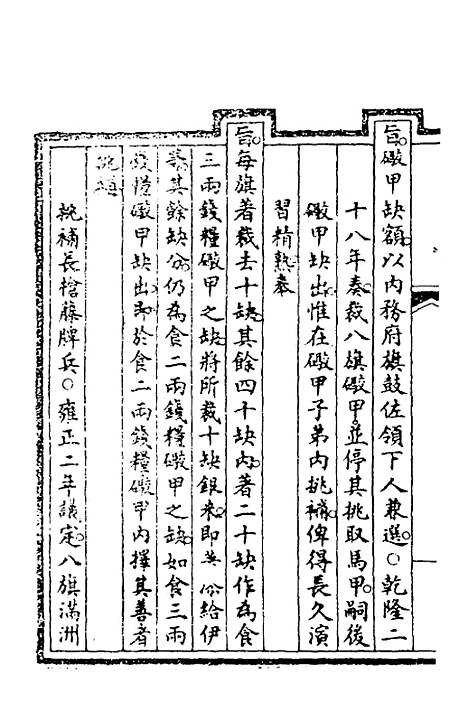 旨礮甲缺額以内務府旗鼓佐領下人兼選○乾隆二
十八年奏裁八旗礮甲並停其挑取馬甲嗣後
礮甲缺出惟在礮甲子弟内挑補俾得長久演
習精熟奉
旨每旗著裁去十缺其餘四十缺内著二十缺作為食
三兩錢糧礮甲之缺將所裁十缺銀米即 給伊
等其餘缺分仍為食二兩錢糧礮甲之缺如食三兩
錢糧礮甲缺出即於食二兩錢糧礮甲内擇其善者
挑補
挑補長槍藤牌兵○雍正二年議定八旗滿洲